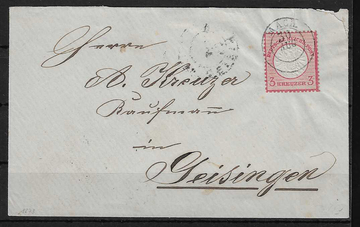 Herrn
A. Kreuzer
Kaufmann
in
Geisingen
3 KREUZER 3